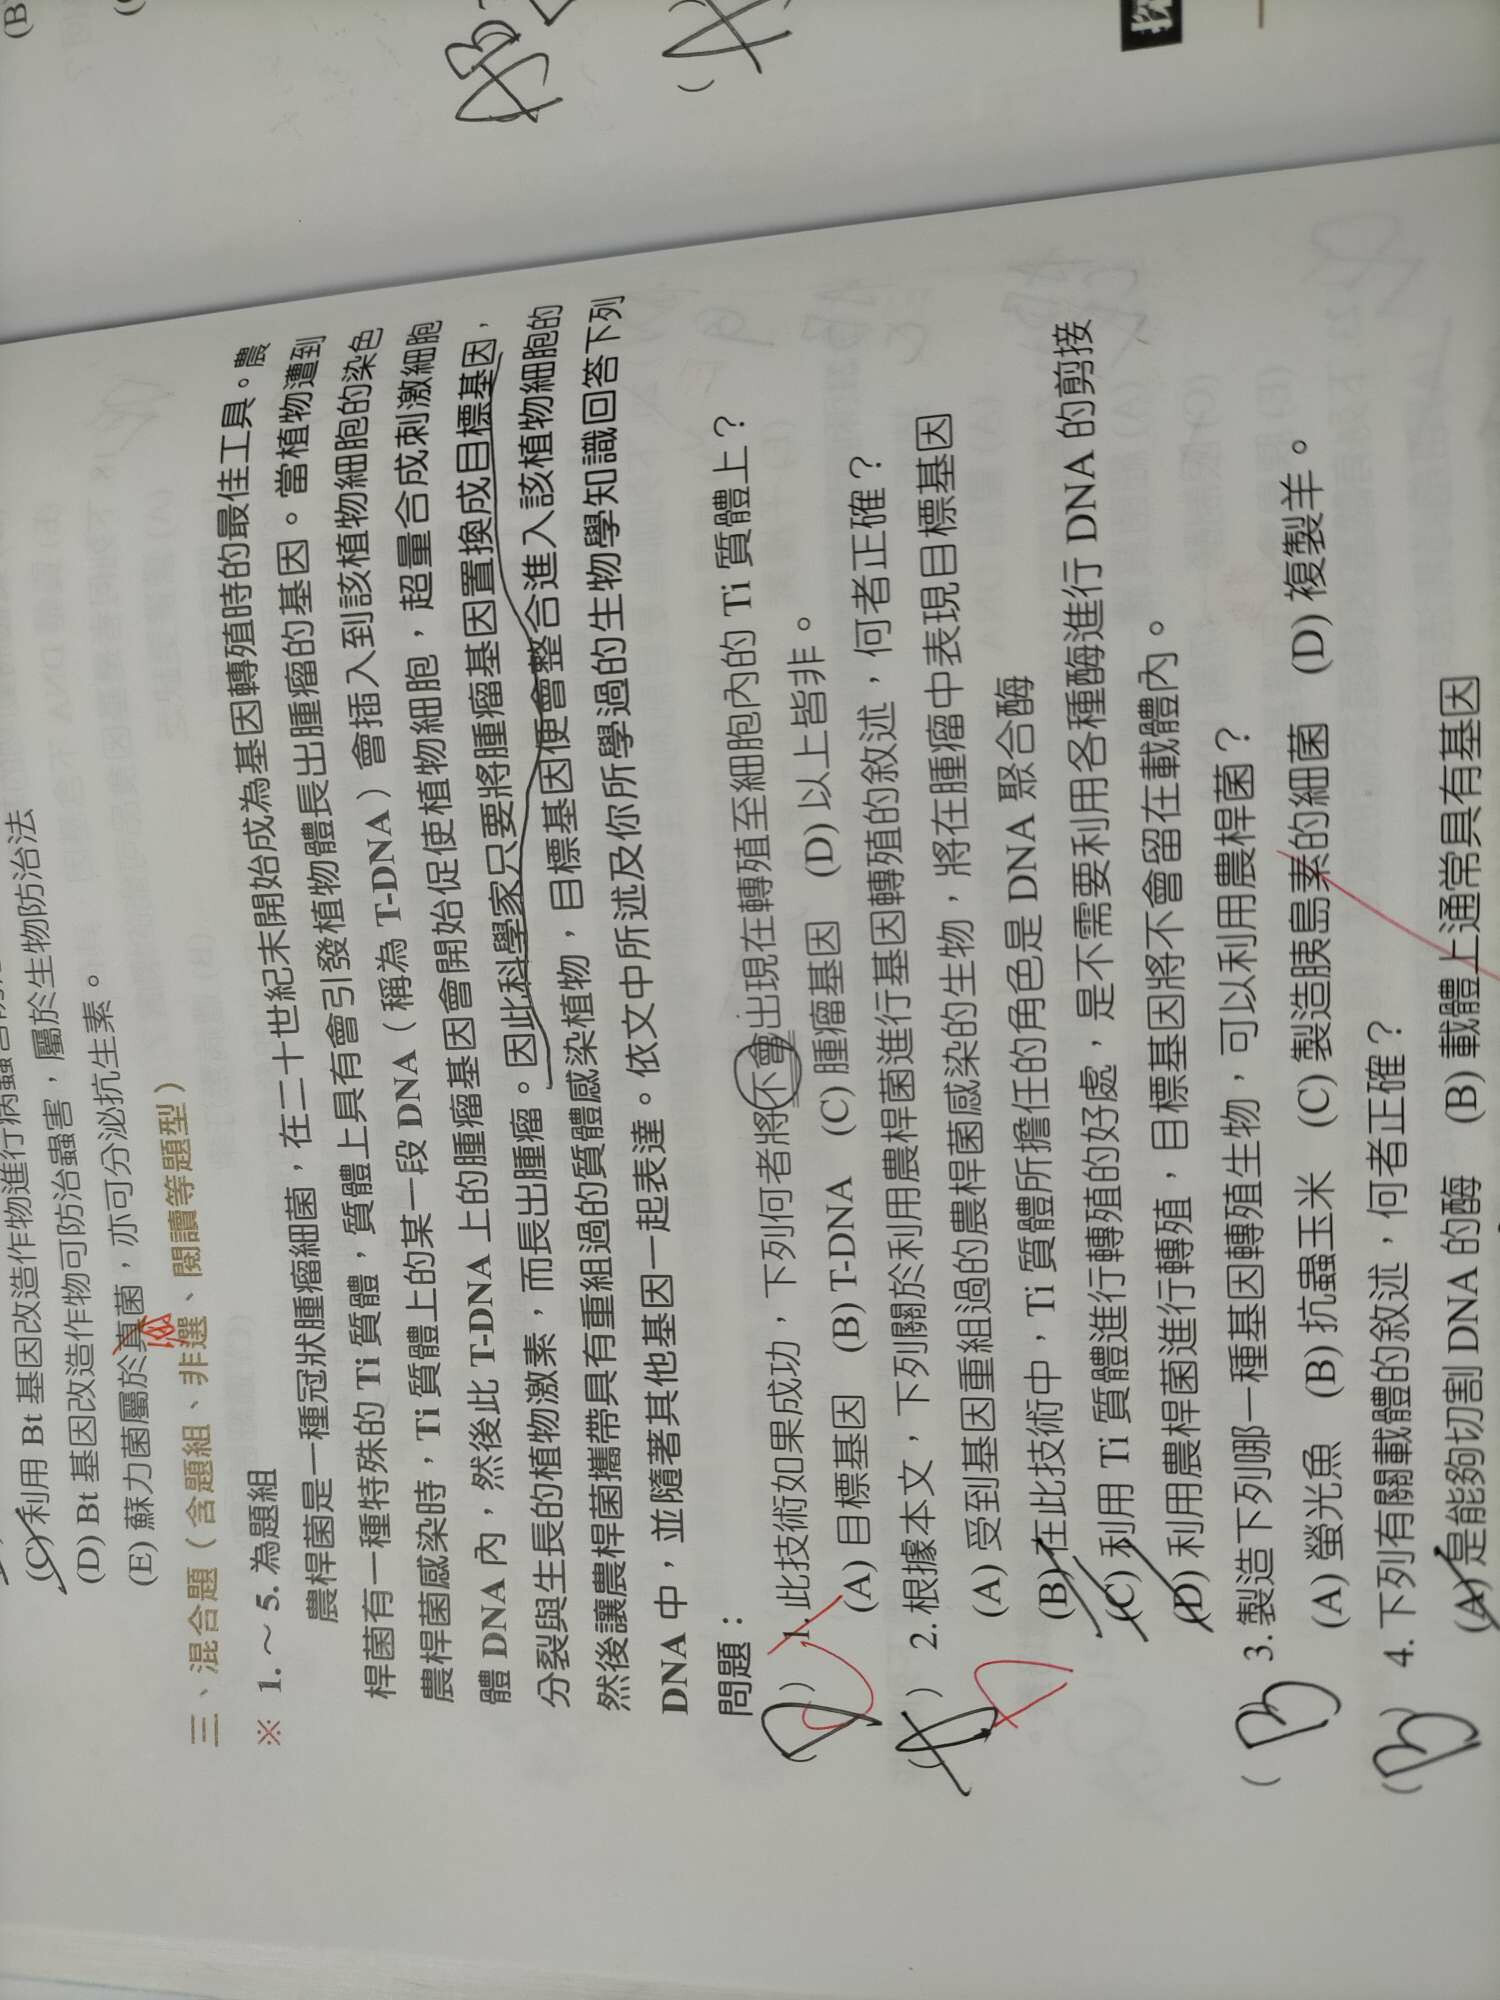 (C) 利用 Bt 基因改造作物進行病蟲害防
(D) Bt 基因改造作物可防治蟲害，屬於生物防治法
(E) 蘇力菌屬於真菌，亦可分泌抗生素。
三、混合題（含題組、非選、閱讀等題型）
※ 1. ～ 5. 為題組
農桿菌是一種冠狀腫瘤細菌，在二十世紀末開始成為基因轉殖時的最佳工具。農
桿菌有一種特殊的 Ti 質體，質體上具有會引發植物體長出腫瘤的基因。當植物遭到
農桿菌感染時，Ti 質體上的某一段 DNA（稱為 T-DNA）會插入到該植物細胞的染色
體 DNA 內，然後此 T-DNA 上的腫瘤基因會開始促使植物細胞，超量合成刺激細胞
分裂與生長的植物激素，而長出腫瘤。因此科學家只要將腫瘤基因置換成目標基因，
然後讓農桿菌攜帶具有重組過的質體感染植物，目標基因便會整合進入該植物細胞的
DNA 中，並隨著其他基因一起表達。依文中所述及你所學過的生物學知識回答下列
問題：
( ) 1. 此技術如果成功，下列何者將不會出現在轉殖至細胞內的 Ti 質體上？
(A) 目標基因 (B) T-DNA (C) 腫瘤基因 (D) 以上皆非。
(A) 2. 根據本文，下列關於利用農桿菌進行基因轉殖的敘述，何者正確？
(A) 受到基因重組過的農桿菌感染的生物，將在腫瘤中表現目標基因
(B) 在此技術中，Ti 質體所擔任的角色是 DNA 聚合酶
(C) 利用 Ti 質體進行轉殖的好處，是不需要利用各種酶進行 DNA 的剪接
(D) 利用農桿菌進行轉殖，目標基因將不會留在載體內。
(B) 3. 製造下列哪一種基因轉殖生物，可以利用農桿菌？
(A) 螢光魚 (B) 抗蟲玉米 (C) 製造胰島素的細菌 (D) 複製羊。
(B) 4. 下列有關載體的敘述，何者正確？
(A) 是能夠切割 DNA 的酶 (B) 載體上通常具有基因